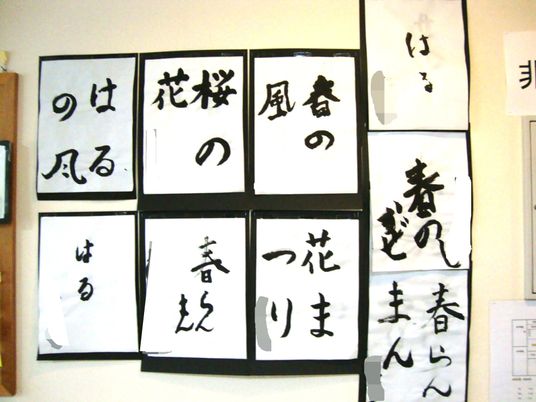 はる
の風
桜の
花
春の
風
はる
はる
春らん
まん
花ま
つり
春の
きざし
春らん
まん
非